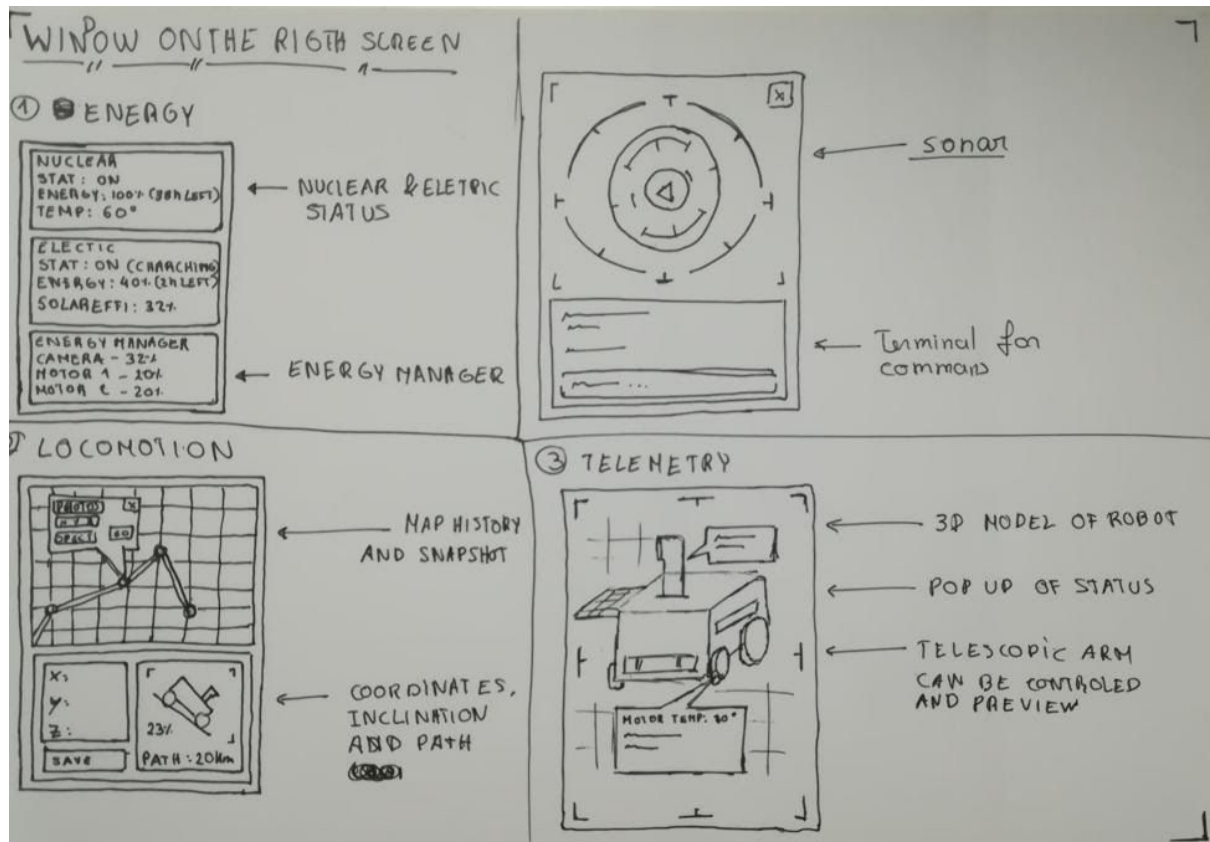 WINDOW ON THE RIGTH SCREEN
① ENERGY
NUCLEAR
STAT: ON
ENERGY: 100% (38h LEFT)
TEMP: 60°
ELECTIC
STAT: ON (CHARCHING)
ENERGY: 40% (2h LEFT)
SOLAR EFFI: 32%
ENERGY MANAGER
CAMERA - 32%
MOTOR 1 - 20%
MOTOR 2 - 20%
NUCLEAR & ELETRIC
STATUS
ENERGY MANAGER
X
sonar
Terminal for
command
LOCOMOTION
PHOTOS
X
SPECT
GO
X:
Y:
Z:
SAVE
23%
PATH: 20Km
MAP HISTORY
AND SNAPSHOT
COORDINATES,
INCLINATION
AND PATH
③ TELEMETRY
MOTOR TEMP: 80°
3D MODEL OF ROBOT
POP UP OF STATUS
TELESCOPIC ARM
CAN BE CONTROLED
AND PREVIEW